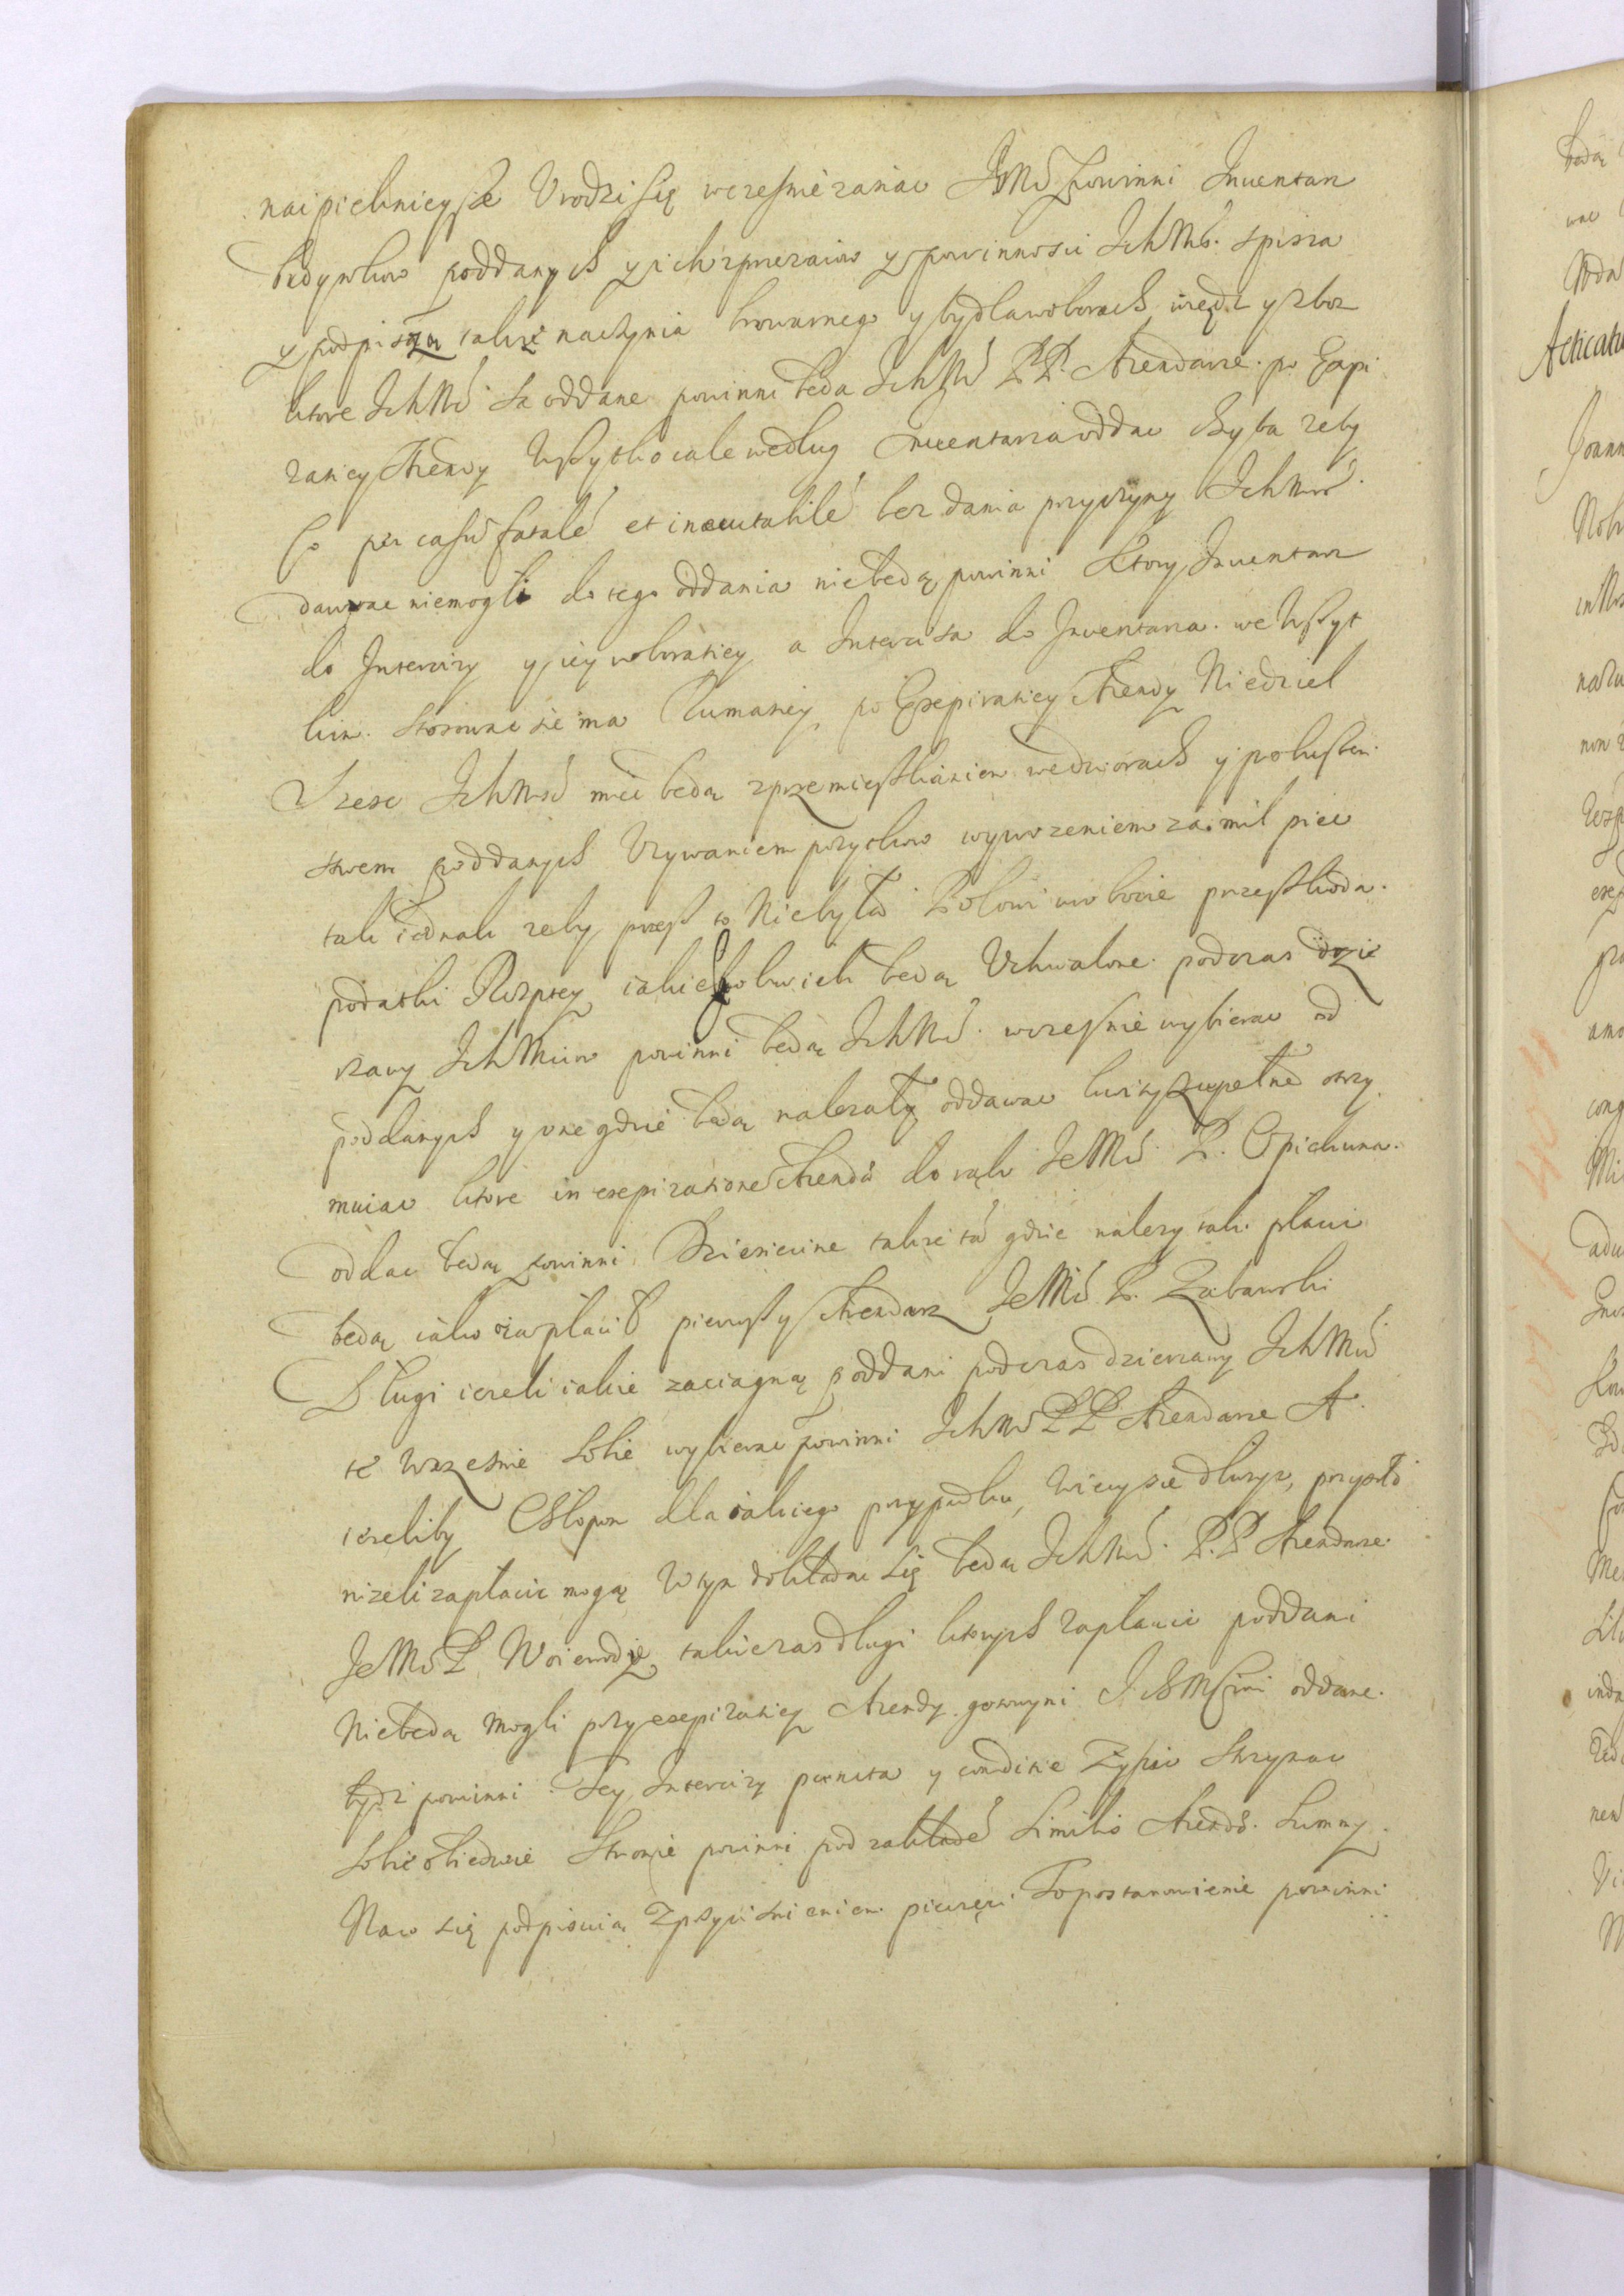 naipiekniejsze Urodzi się wczesnie zaraz JMć powinni Inwentarz
budynkow poddanych y ich zprzezaiow y powinnosci IchMć. spisza
y podpiszą także naczynia browarnego y bydła w oborach wręcz y zboz
ktore IchMć. sa oddane powinni będa IchMć PP Arendarze. po Expi
ratiey Arendy Wszytko cale według Inwentarza oddac Chyba zeby
Co per casu fatale et inevitabile bez dania przyczyny IchMść.
dawac niemogli do tego oddania niebedą powinni Ktory Inwentarz
do Intercizy y iey roboratiey a Interciza do Inwentarza. we Wszyt
kim. stosowac sie ma Rumatiey po Expiratiey Arendy Niedziel
Szesc IchMść miec będą zprzemieszkaniem we dworach y posłuszen.
stwem poddanych Uzywaniem pozytkow wywozeniem za mil piec
tak iednak zeby przesz to Niebyła Polom w robocie przeszkoda.
podatki Rzptey iakieszkolwiek będą Uchwalone. podczas dzie
rzawy IchMciow powinni będą IchMć. wczesnie wybierac od
poddanych y one gdzie będą nalezały oddawac kwity zupełne otrzy
muiac ktore in expiratione Arenda do rąk JeMć P. Opiekuna.
oddac będą powinni. Dziesiecine takze ta gdzie nalezy tak placic
będą iako zapłacił pierwszy Arendarz JeMć P. Zabawski
Długi iezeli iakie zaciagną poddani podczas dzierzawy IchMć
te Wczesnie sobie wybierac powinni IchMć PP Arendarze A.
iezeliby Chłopom dla iakiego przypadku, wiecy sie dłuzyc, przyszło
nizeli zapłacic mogą W tym dokładac się będą IchMć. P.P Arendarze.
JeMć P Woiewodzie takie zas dlugi ktorych zapłacic poddani
Niebędą Mogli przy expiratiey Arendy gotowymi IchMściom oddane.
bydz powinni. Tey Intercizy puncta y conditie Zyscic Strzymac
sobie obiedwie Stronie powinni pod zakłade Similis Arendo. Summy.
Na co się podpisuią Zprzycisnieniem. pieczęci. To postanowienie powinni